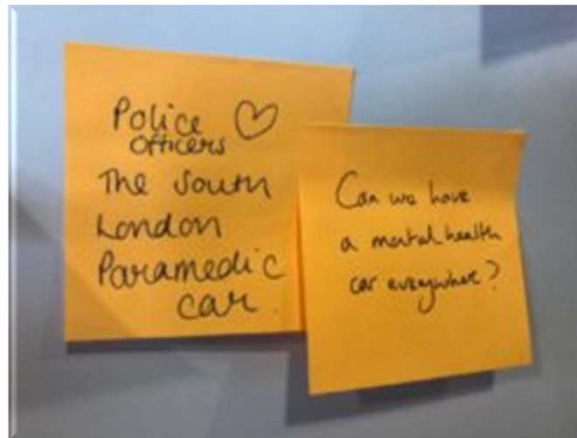 Police ♡
Officers
The South
London
Paramedic
car.
Can we have
a mental health
car everywhere?